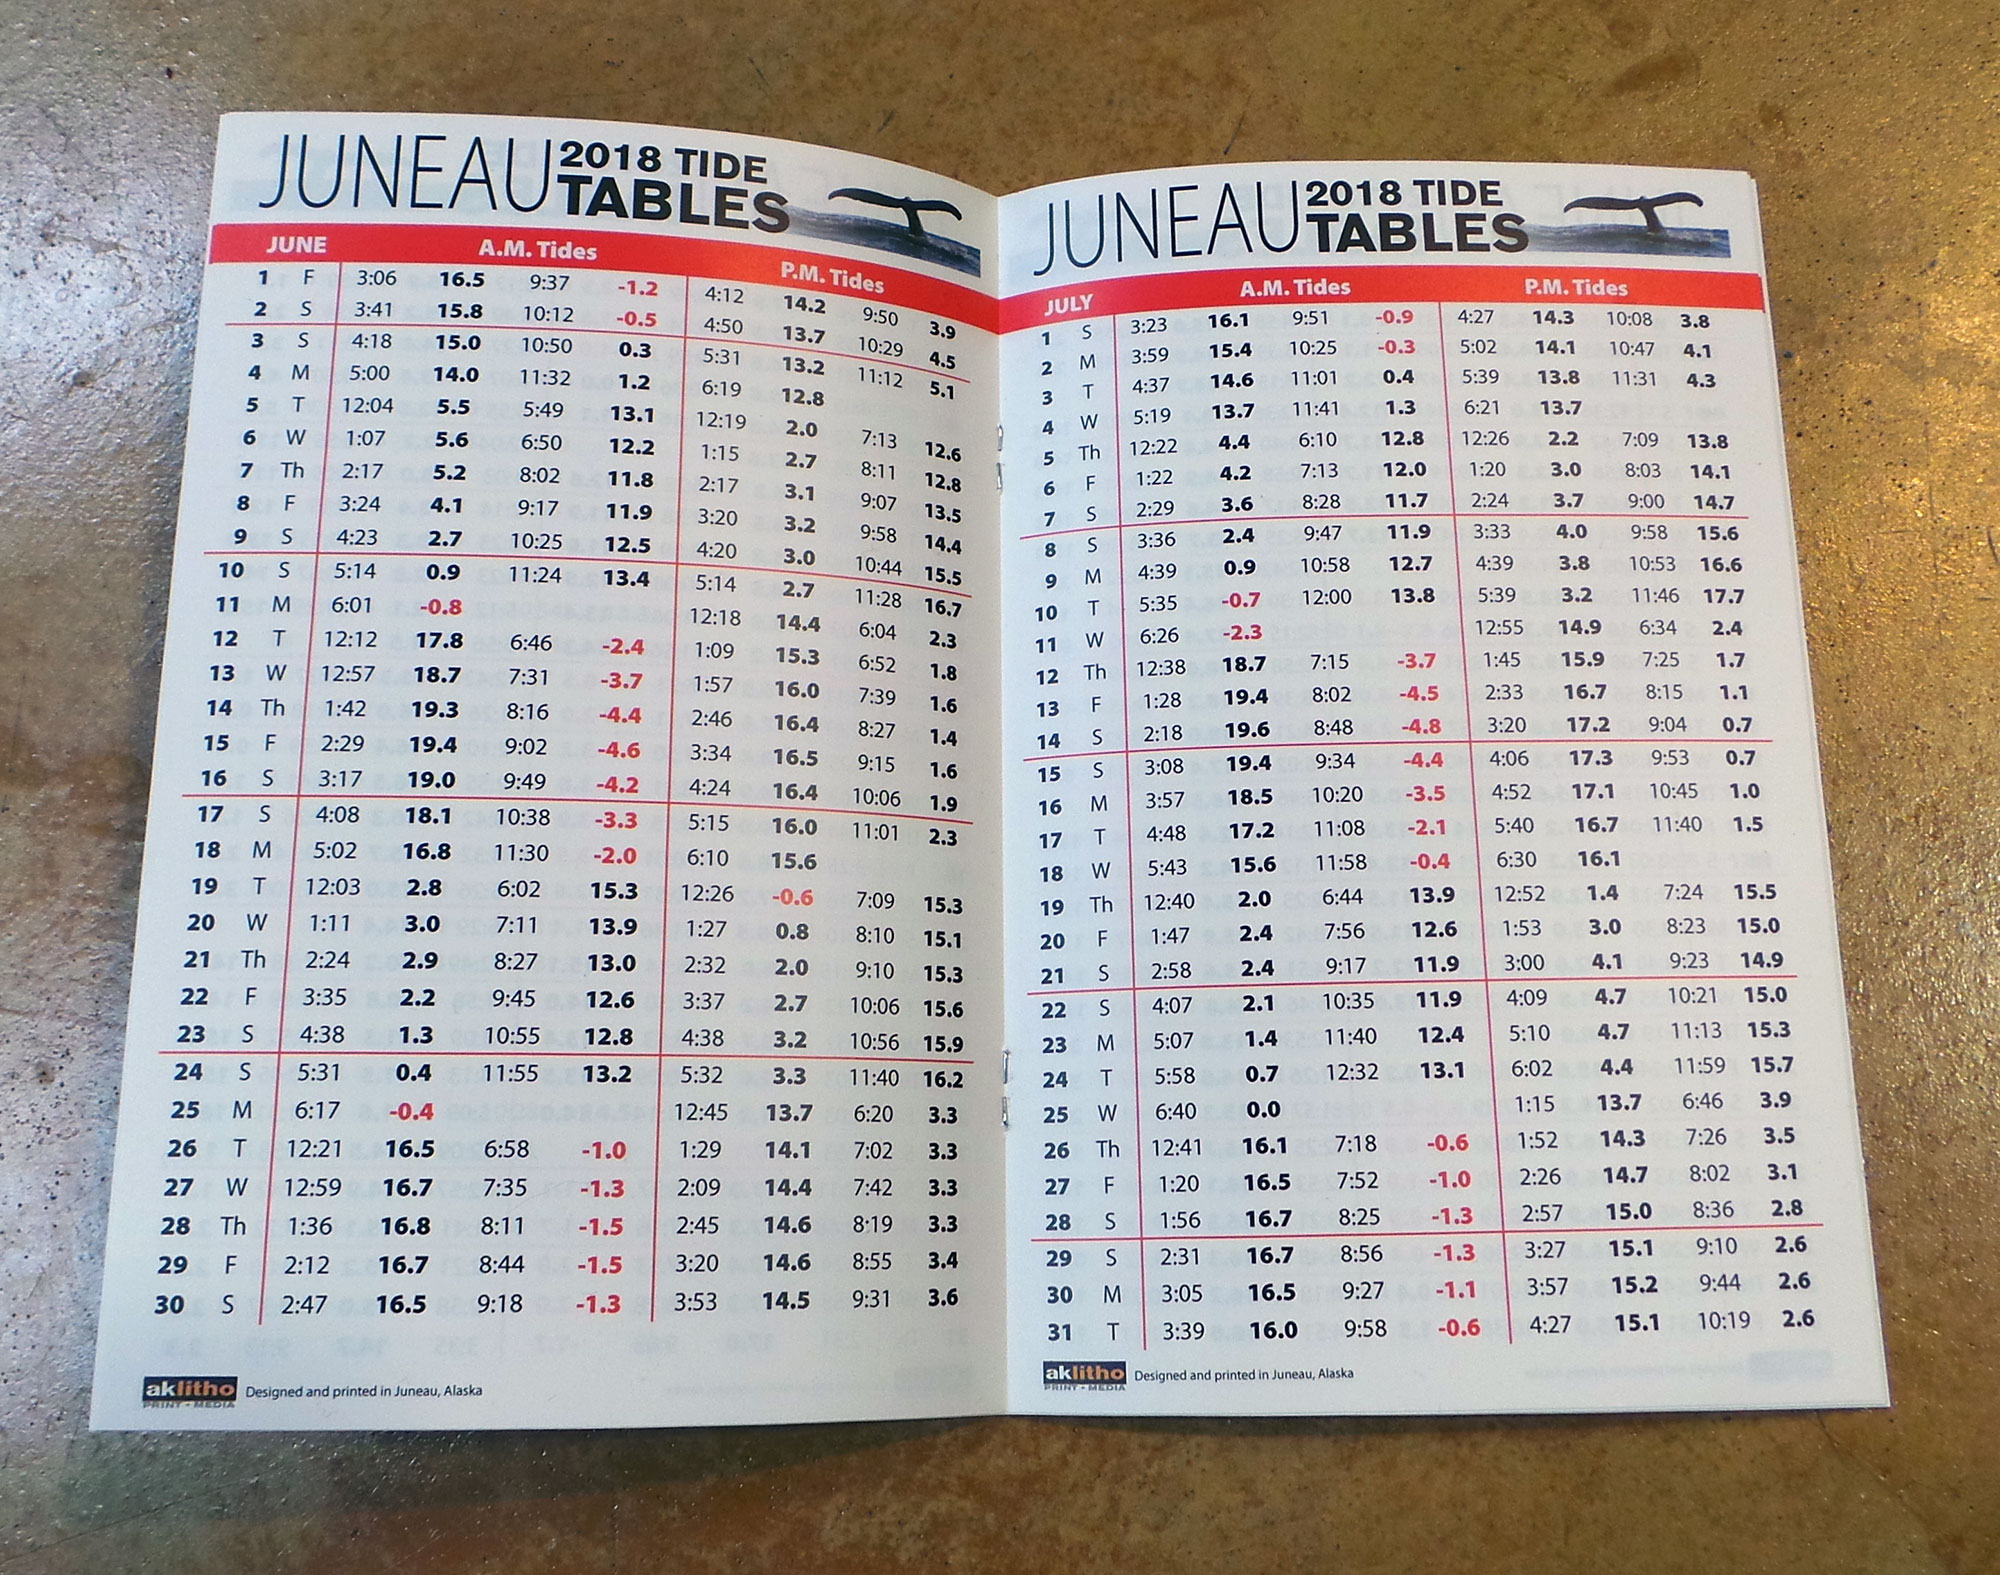 JUNEAU 2018 TIDE TABLES
JUNE A.M. Tides P.M. Tides
1 F 3:06 16.5 9:37 -1.2 4:12 14.2 9:50 3.9
2 S 3:41 15.8 10:12 -0.5 4:50 13.7 10:29 4.5
3 S 4:18 15.0 10:50 0.3 5:31 13.2 11:12 5.1
4 M 5:00 14.0 11:32 1.2 6:19 12.8
5 T 12:04 5.5 5:49 13.1 12:19 2.0 7:13 12.6
6 W 1:07 5.6 6:50 12.2 1:15 2.7 8:11 12.8
7 Th 2:17 5.2 8:02 11.8 2:17 3.1 9:07 13.5
8 F 3:24 4.1 9:17 11.9 3:20 3.2 9:58 14.4
9 S 4:23 2.7 10:25 12.5 4:20 3.0 10:44 15.5
10 S 5:14 0.9 11:24 13.4 5:14 2.7 11:28 16.7
11 M 6:01 -0.8 12:18 14.4 6:04 2.3
12 T 12:12 17.8 6:46 -2.4 1:09 15.3 6:52 1.8
13 W 12:57 18.7 7:31 -3.7 1:57 16.0 7:39 1.6
14 Th 1:42 19.3 8:16 -4.4 2:46 16.4 8:27 1.4
15 F 2:29 19.4 9:02 -4.6 3:34 16.5 9:15 1.6
16 S 3:17 19.0 9:49 -4.2 4:24 16.4 10:06 1.9
17 S 4:08 18.1 10:38 -3.3 5:15 16.0 11:01 2.3
18 M 5:02 16.8 11:30 -2.0 6:10 15.6
19 T 12:03 2.8 6:02 15.3 12:26 -0.6 7:09 15.3
20 W 1:11 3.0 7:11 13.9 1:27 0.8 8:10 15.1
21 Th 2:24 2.9 8:27 13.0 2:32 2.0 9:10 15.3
22 F 3:35 2.2 9:45 12.6 3:37 2.7 10:06 15.6
23 S 4:38 1.3 10:55 12.8 4:38 3.2 10:56 15.9
24 S 5:31 0.4 11:55 13.2 5:32 3.3 11:40 16.2
25 M 6:17 -0.4 12:45 13.7 6:20 3.3
26 T 12:21 16.5 6:58 -1.0 1:29 14.1 7:02 3.3
27 W 12:59 16.7 7:35 -1.3 2:09 14.4 7:42 3.3
28 Th 1:36 16.8 8:11 -1.5 2:45 14.6 8:19 3.3
29 F 2:12 16.7 8:44 -1.5 3:20 14.6 8:55 3.4
30 S 2:47 16.5 9:18 -1.3 3:53 14.5 9:31 3.6
aklitho Designed and printed in Juneau, Alaska
PRINT - MEDIA
JUNEAU 2018 TIDE TABLES
JULY A.M. Tides P.M. Tides
1 S 3:23 16.1 9:51 -0.9 4:27 14.3 10:08 3.8
2 M 3:59 15.4 10:25 -0.3 5:02 14.1 10:47 4.1
3 T 4:37 14.6 11:01 0.4 5:39 13.8 11:31 4.3
4 W 5:19 13.7 11:41 1.3 6:21 13.7
5 Th 12:22 4.4 6:10 12.8 12:26 2.2 7:09 13.8
6 F 1:22 4.2 7:13 12.0 1:20 3.0 8:03 14.1
7 S 2:29 3.6 8:28 11.7 2:24 3.7 9:00 14.7
8 S 3:36 2.4 9:47 11.9 3:33 4.0 9:58 15.6
9 M 4:39 0.9 10:58 12.7 4:39 3.8 10:53 16.6
10 T 5:35 -0.7 12:00 13.8 5:39 3.2 11:46 17.7
11 W 6:26 -2.3 12:55 14.9 6:34 2.4
12 Th 12:38 18.7 7:15 -3.7 1:45 15.9 7:25 1.7
13 F 1:28 19.4 8:02 -4.5 2:33 16.7 8:15 1.1
14 S 2:18 19.6 8:48 -4.8 3:20 17.2 9:04 0.7
15 S 3:08 19.4 9:34 -4.4 4:06 17.3 9:53 0.7
16 M 3:57 18.5 10:20 -3.5 4:52 17.1 10:45 1.0
17 T 4:48 17.2 11:08 -2.1 5:40 16.7 11:40 1.5
18 W 5:43 15.6 11:58 -0.4 6:30 16.1
19 Th 12:40 2.0 6:44 13.9 12:52 1.4 7:24 15.5
20 F 1:47 2.4 7:56 12.6 1:53 3.0 8:23 15.0
21 S 2:58 2.4 9:17 11.9 3:00 4.1 9:23 14.9
22 S 4:07 2.1 10:35 11.9 4:09 4.7 10:21 15.0
23 M 5:07 1.4 11:40 12.4 5:10 4.7 11:13 15.3
24 T 5:58 0.7 12:32 13.1 6:02 4.4 11:59 15.7
25 W 6:40 0.0 1:15 13.7 6:46 3.9
26 Th 12:41 16.1 7:18 -0.6 1:52 14.3 7:26 3.5
27 F 1:20 16.5 7:52 -1.0 2:26 14.7 8:02 3.1
28 S 1:56 16.7 8:25 -1.3 2:57 15.0 8:36 2.8
29 S 2:31 16.7 8:56 -1.3 3:27 15.1 9:10 2.6
30 M 3:05 16.5 9:27 -1.1 3:57 15.2 9:44 2.6
31 T 3:39 16.0 9:58 -0.6 4:27 15.1 10:19 2.6
aklitho Designed and printed in Juneau, Alaska
PRINT - MEDIA